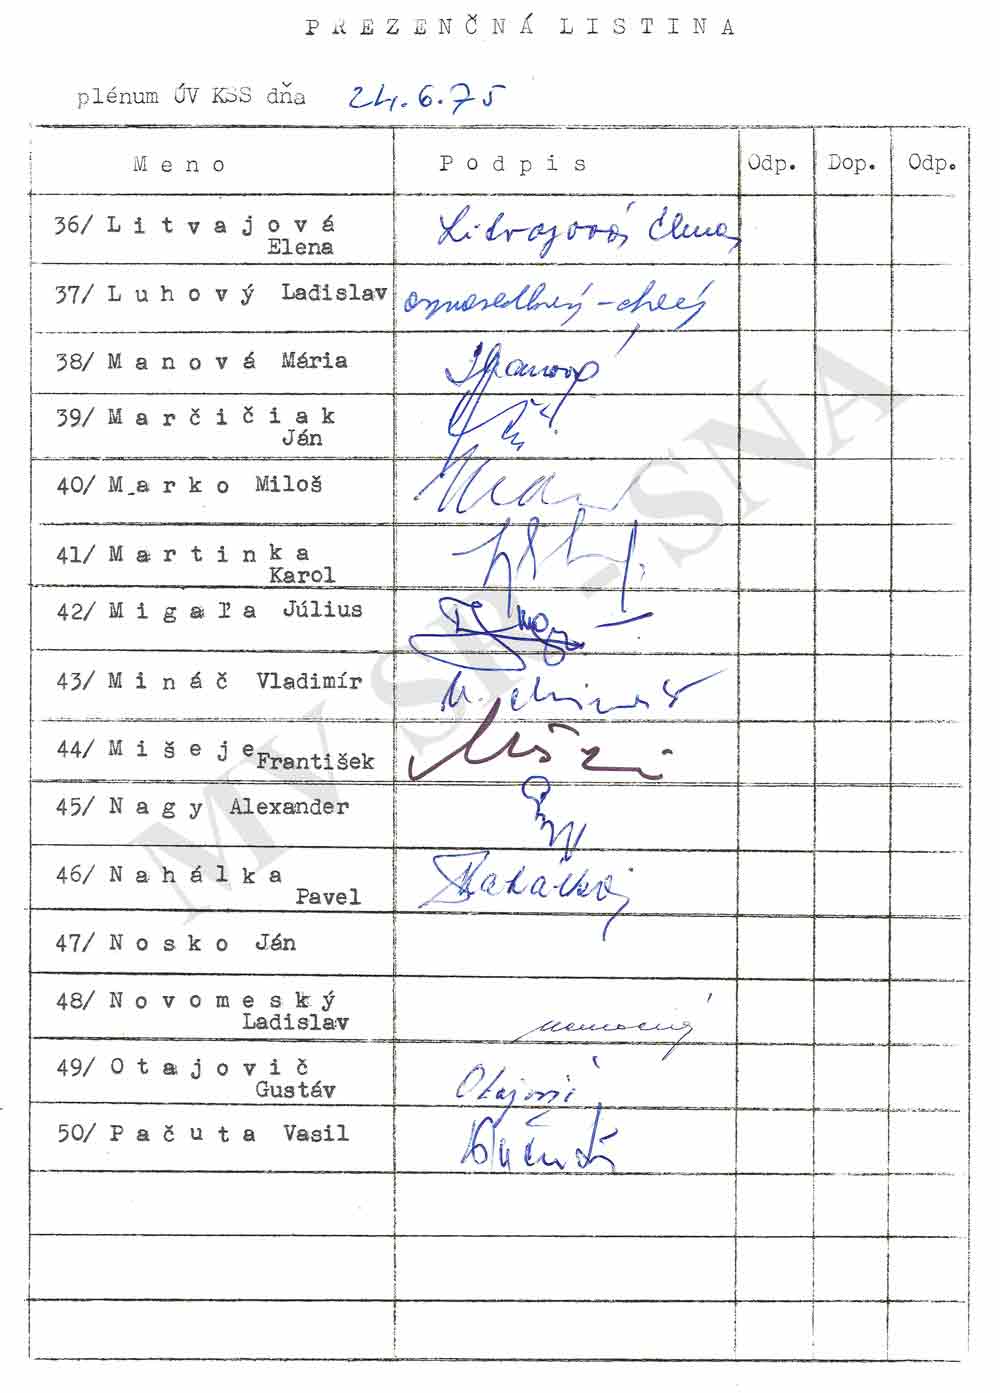 PREZENČNÁ LISTINA
plénum ÚV KSS dňa 24.6.75
Meno Podpis Odp. Dop. Odp.
36/ Litvajová Litvajová Elena
Elena
37/ Luhový Ladislav ospravedlnený - chorý
38/ Manová Mária Manová
39/ Marčičiak
Ján
40/ Marko Miloš
41/ Martinka
Karol
42/ Migaľa Július
43/ Mináč Vladimír
44/ Mišeje
František
45/ Nagy Alexander
46/ Nahálka
Pavel
47/ Nosko Ján
48/ Novomeský
Ladislav nemocný
49/ Otajovič
Gustáv Otajovič
50/ Pačuta Vasil
MV SR - SNA